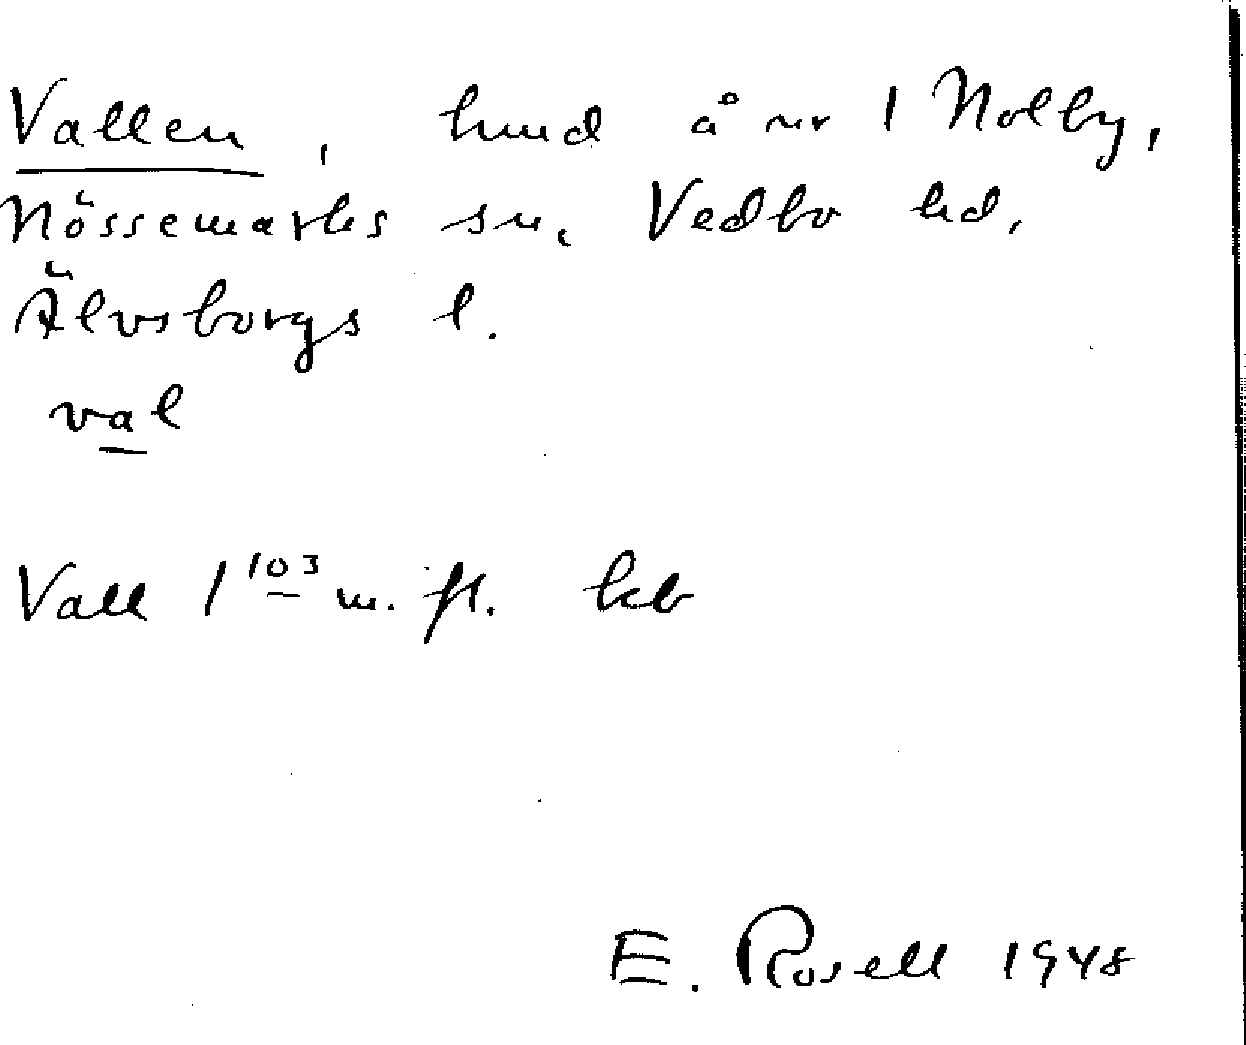 Vallen, hmd å nr 1 Nolby,
Nössemarks sn. Vedbo hd,
Älvsborgs l.
val
Vall 1 103 m. fl. kb
E. Rosell 1948